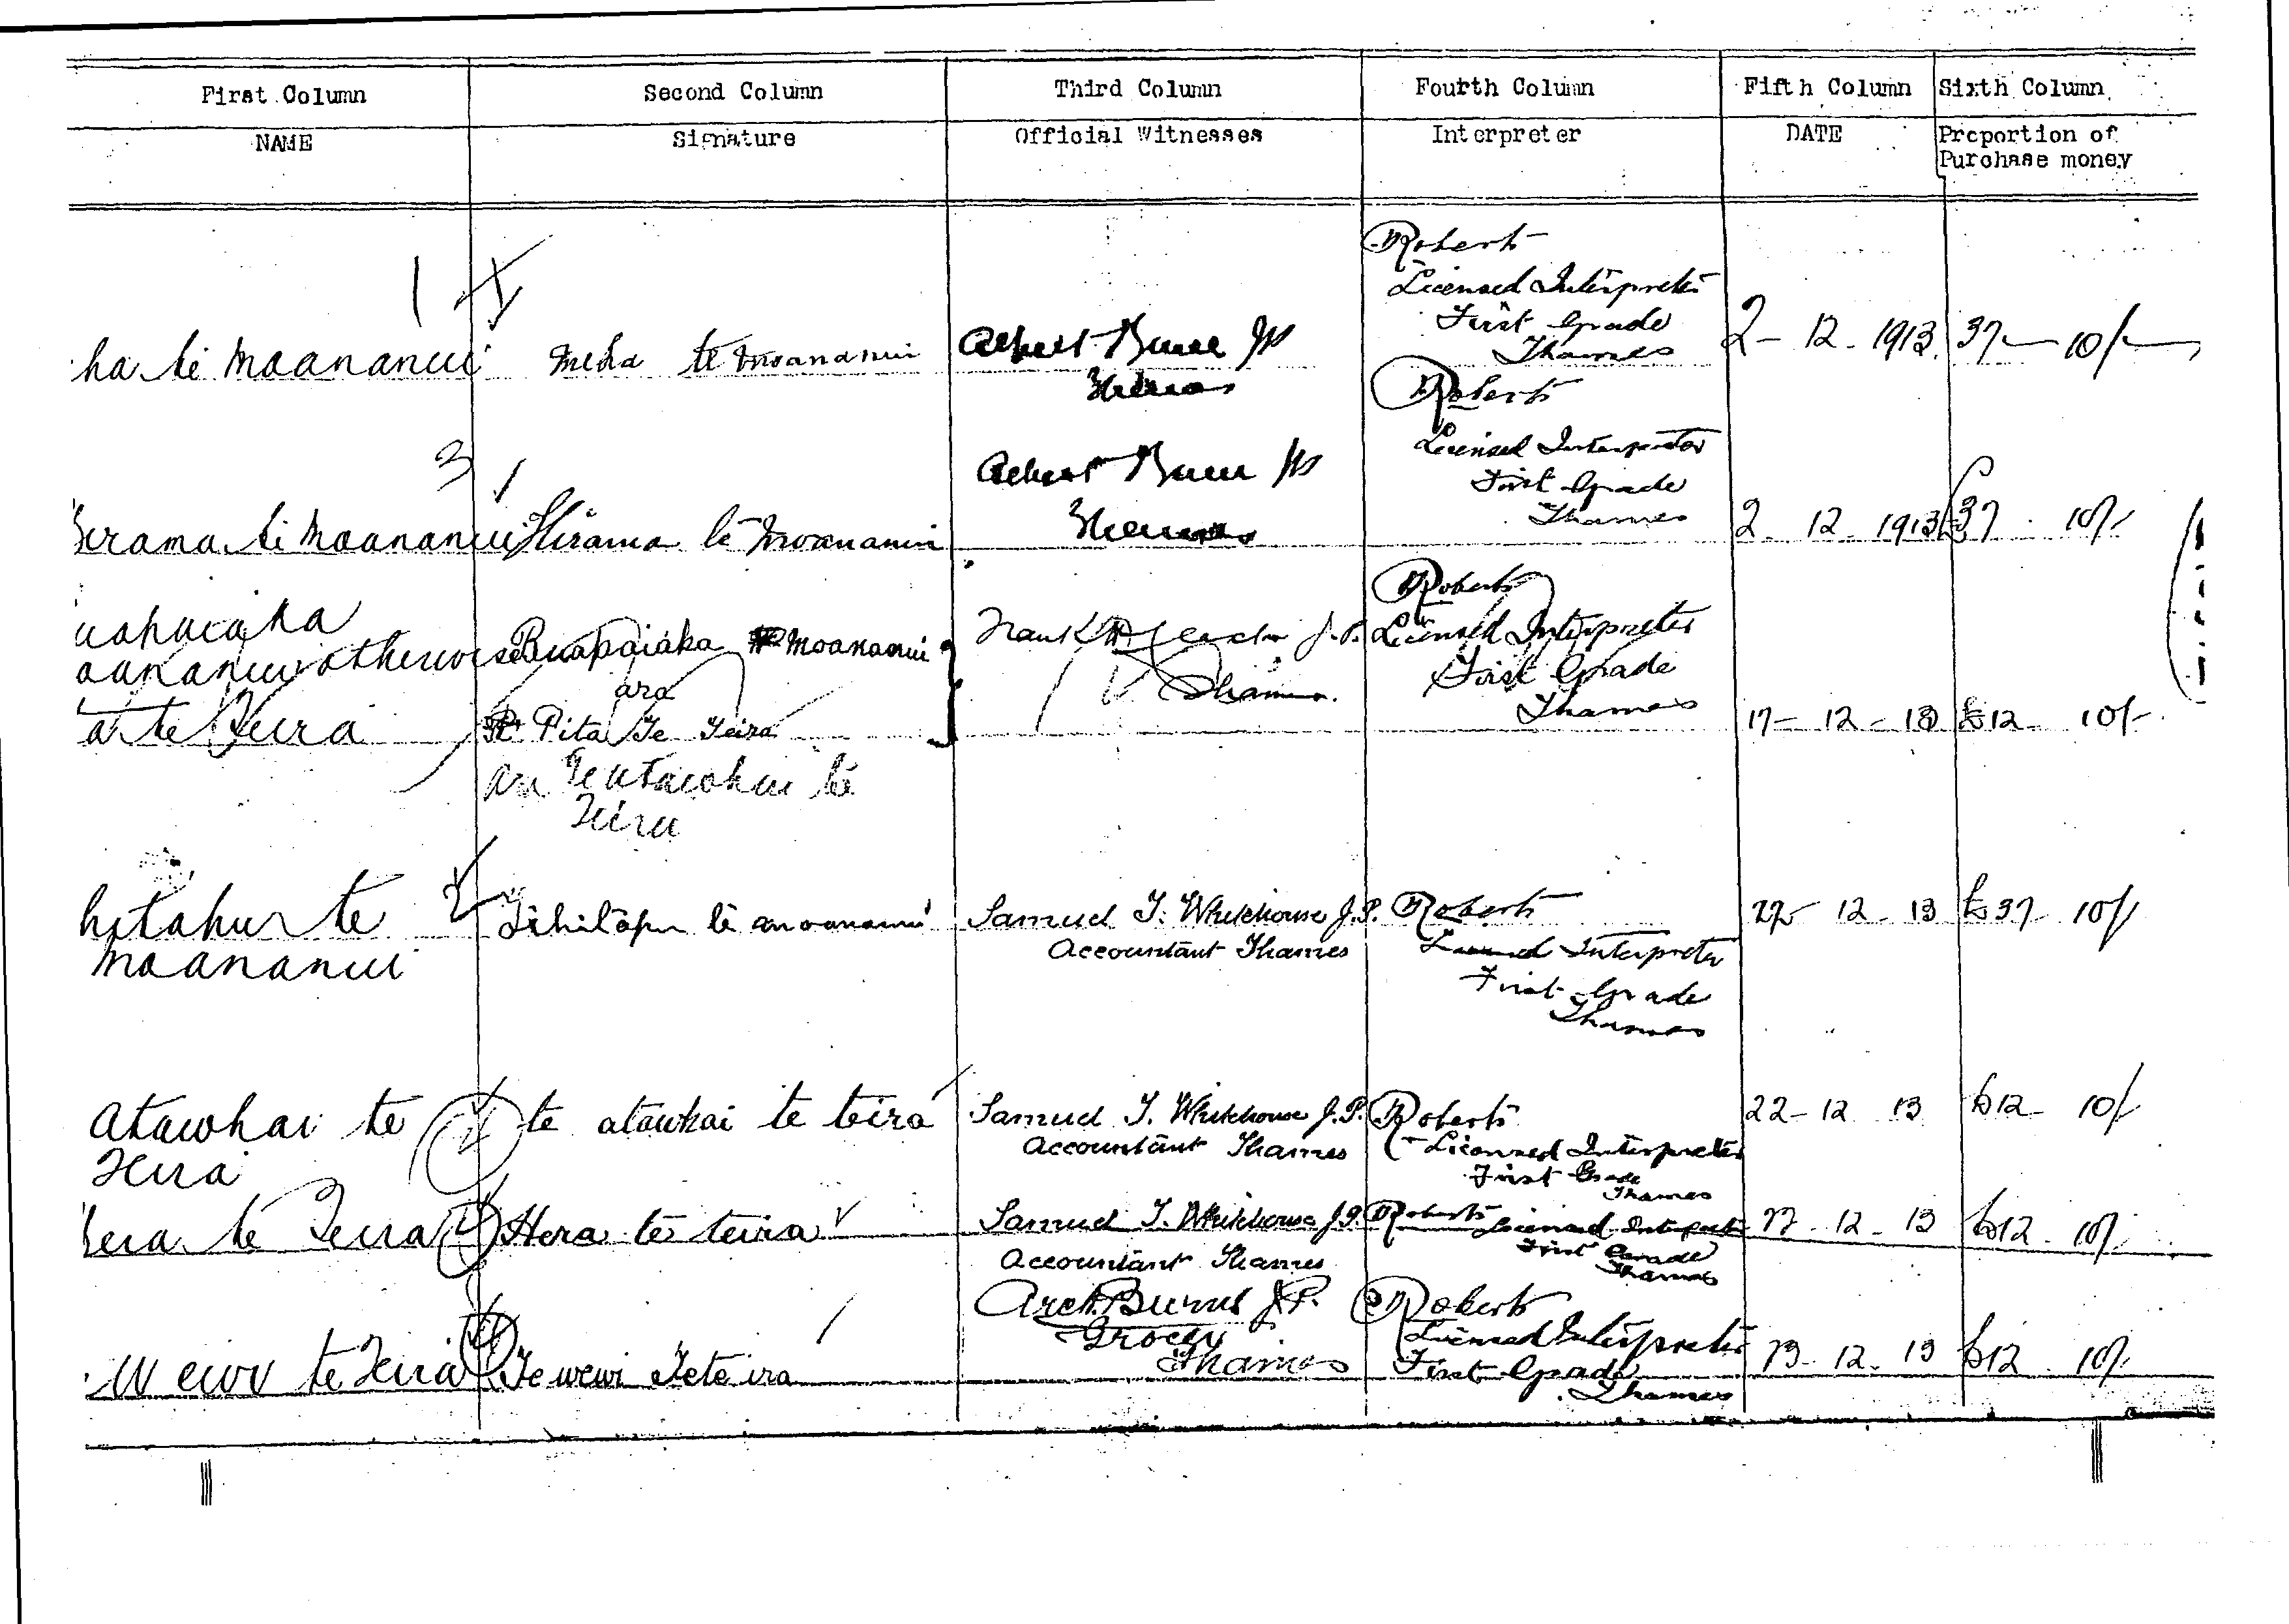 First Column Second Column Third Column Fourth Column Fifth Column Sixth Column
NAME Signature Official Witnesses Interpreter DATE Proportion of
Purchase money
Roberts
Licensed Interpreter
First Grade
Thames
1
ha te Moananui Meha te Moananui Albert J.P. 2 - 12 - 1913 37 - 10/-
Roberts
Licensed Interpreter
First Grade
Thames
3
Albert J.P.
erama te Moananui Hirama te Moananui 2 - 12 - 1913 £37 . 10/-
Roberts
Licensed Interpreter
First Grade
Thames
uapaiaka
oananui otherwise Puapaiaka Moananui Frank J.P.
ara Thames
a te Teira Pita Te Teira 17 - 12 - 13 £12 - 10/-
ara Te Atawhai te
Teira
te Moananui te Moananui Samuel T. Whitehouse J.P. Roberts 22 - 12 - 13 £37 - 10/-
Accountant Thames Licensed Interpreter
First Grade
Thames
Atawhai te te atawhai te teira Samuel T. Whitehouse J.P. Roberts 22 - 12 13 £12 - 10/-
Teira Accountant Thames Licensed Interpreter
First Grade
Thames
era te Teira Hera te teira Samuel T. Whitehouse J.P. Roberts Licensed Interpreter 22 - 12 - 13 £12 - 10/-
Accountant Thames First Grade
Thames
Arch. Burns J.P. Roberts
Grocer Licensed Interpreter
Wewi te Teira Te wewi Teteira Thames First Grade 23 - 12 - 13 £12 - 10/-
Thames